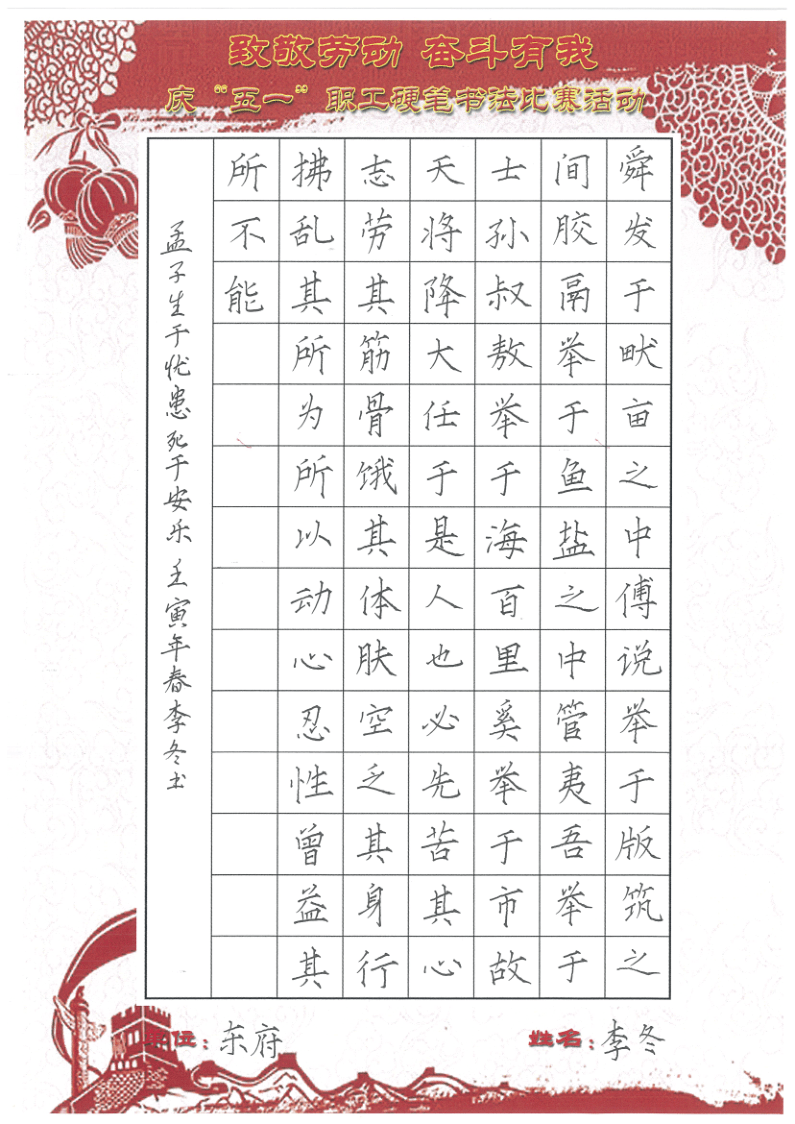 致敬劳动 奋斗有我
庆“五一”职工硬笔书法比赛活动
舜发于畎亩之中傅说举于版筑之
间胶鬲举于鱼盐之中管夷吾举于
士孙叔敖举于海百里奚举于市故
天将降大任于是人也必先苦其心
志劳其筋骨饿其体肤空乏其身行
拂乱其所为所以动心忍性曾益其
所不能
孟子生于忧患死于安乐 壬寅年春李冬书
单位：东府
姓名：李冬